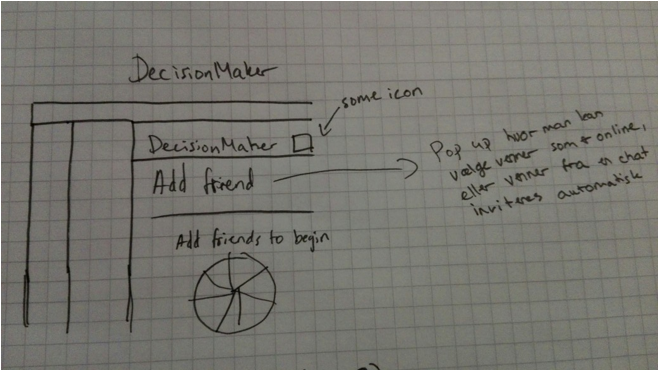 DecisionMaker
some icon
DecisionMaker
Add friend
Pop up hvor man kan
vælge venner som er online,
eller venner fra en chat
inviteres automatisk
Add friends to begin